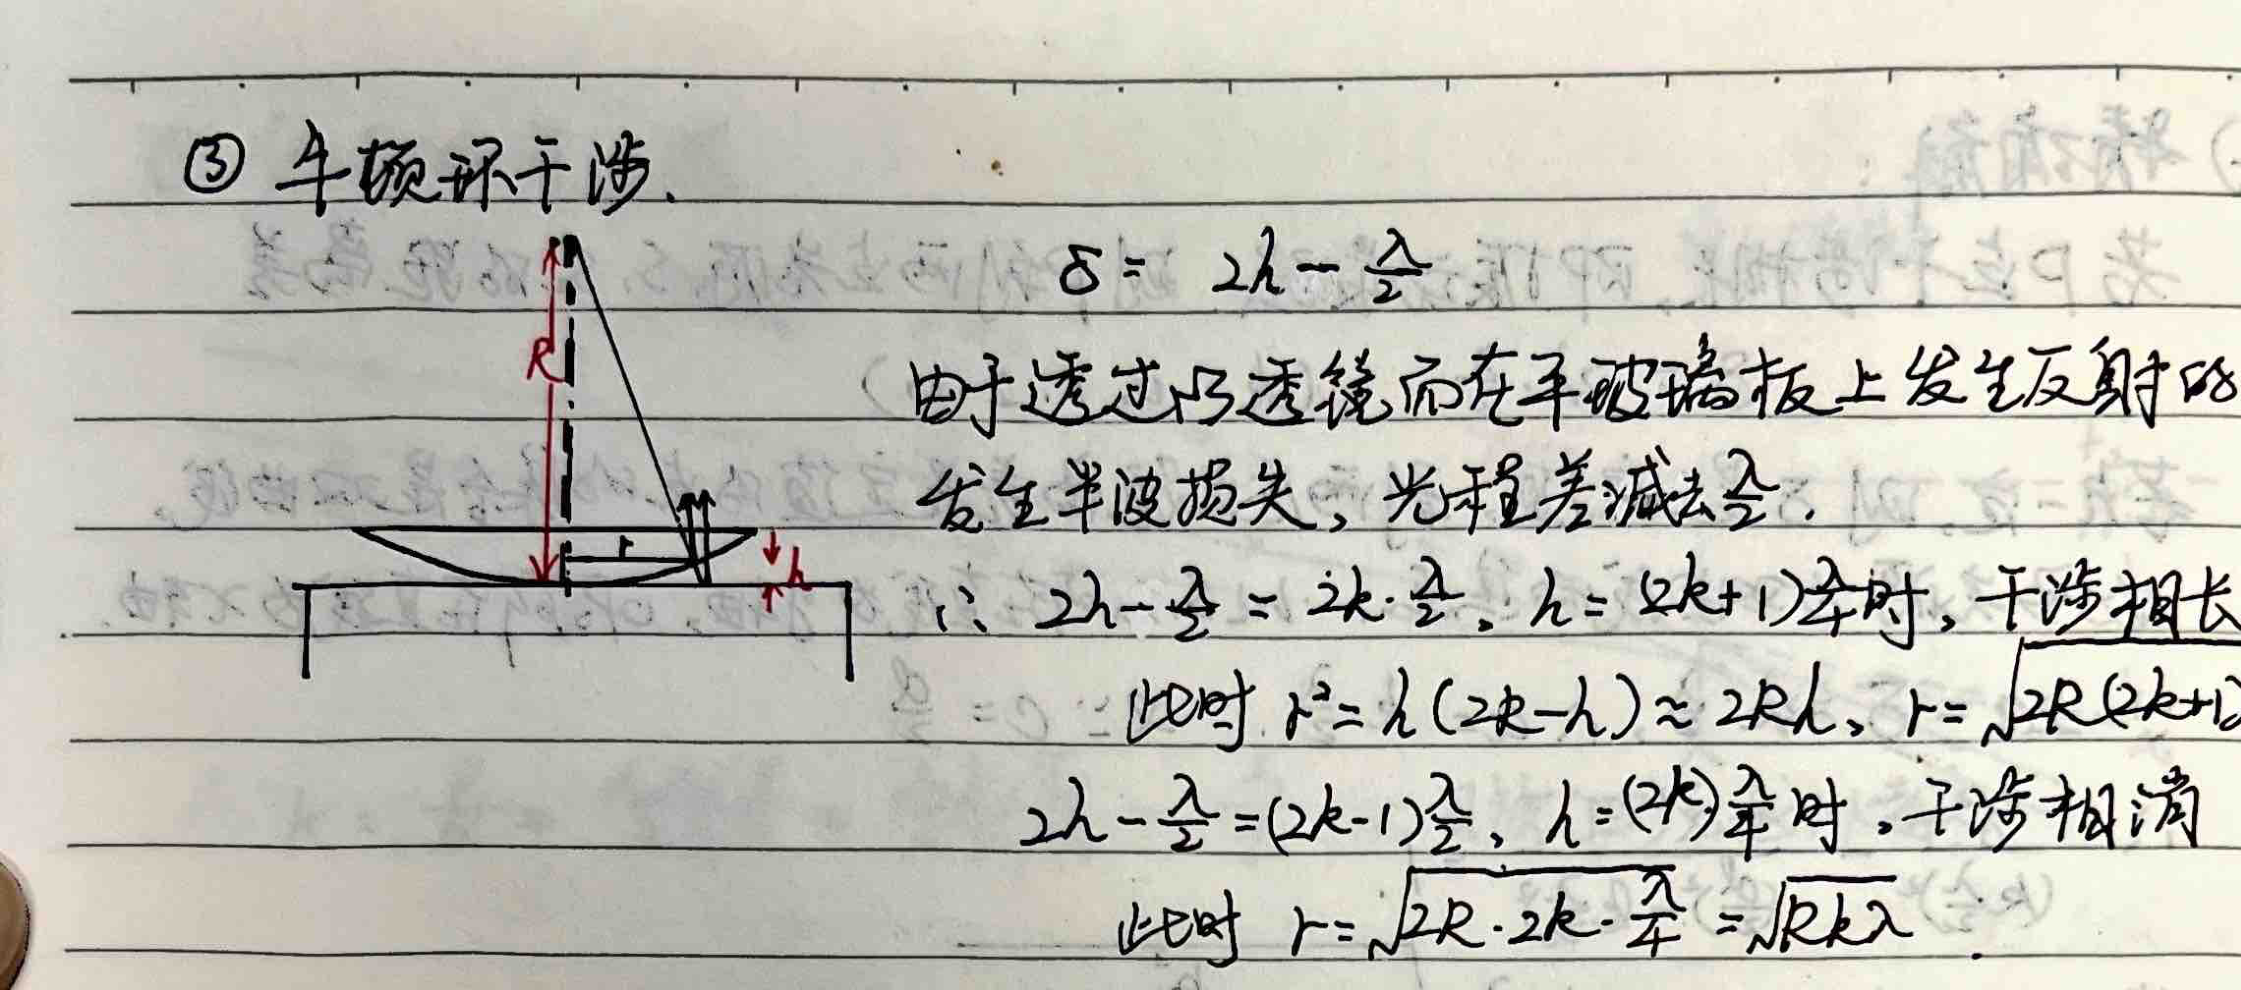 ③ 牛顿环干涉.
δ = 2h - λ/2
R
r
h
由于透过凸透镜而在平玻璃板上发生反射的
发生半波损失, 光程差减去 λ/2.
∴ 2h - λ/2 = 2k·λ/2, h = (2k+1)λ/4 时, 干涉相长
此时 r² = h(2R-h) ≈ 2Rh, r = √2R(2k+1)
2h - λ/2 = (2k-1)λ/2, h = (2k)λ/4 时, 干涉相消
此时 r = √2R·2k·λ/4 = √Rkλ.